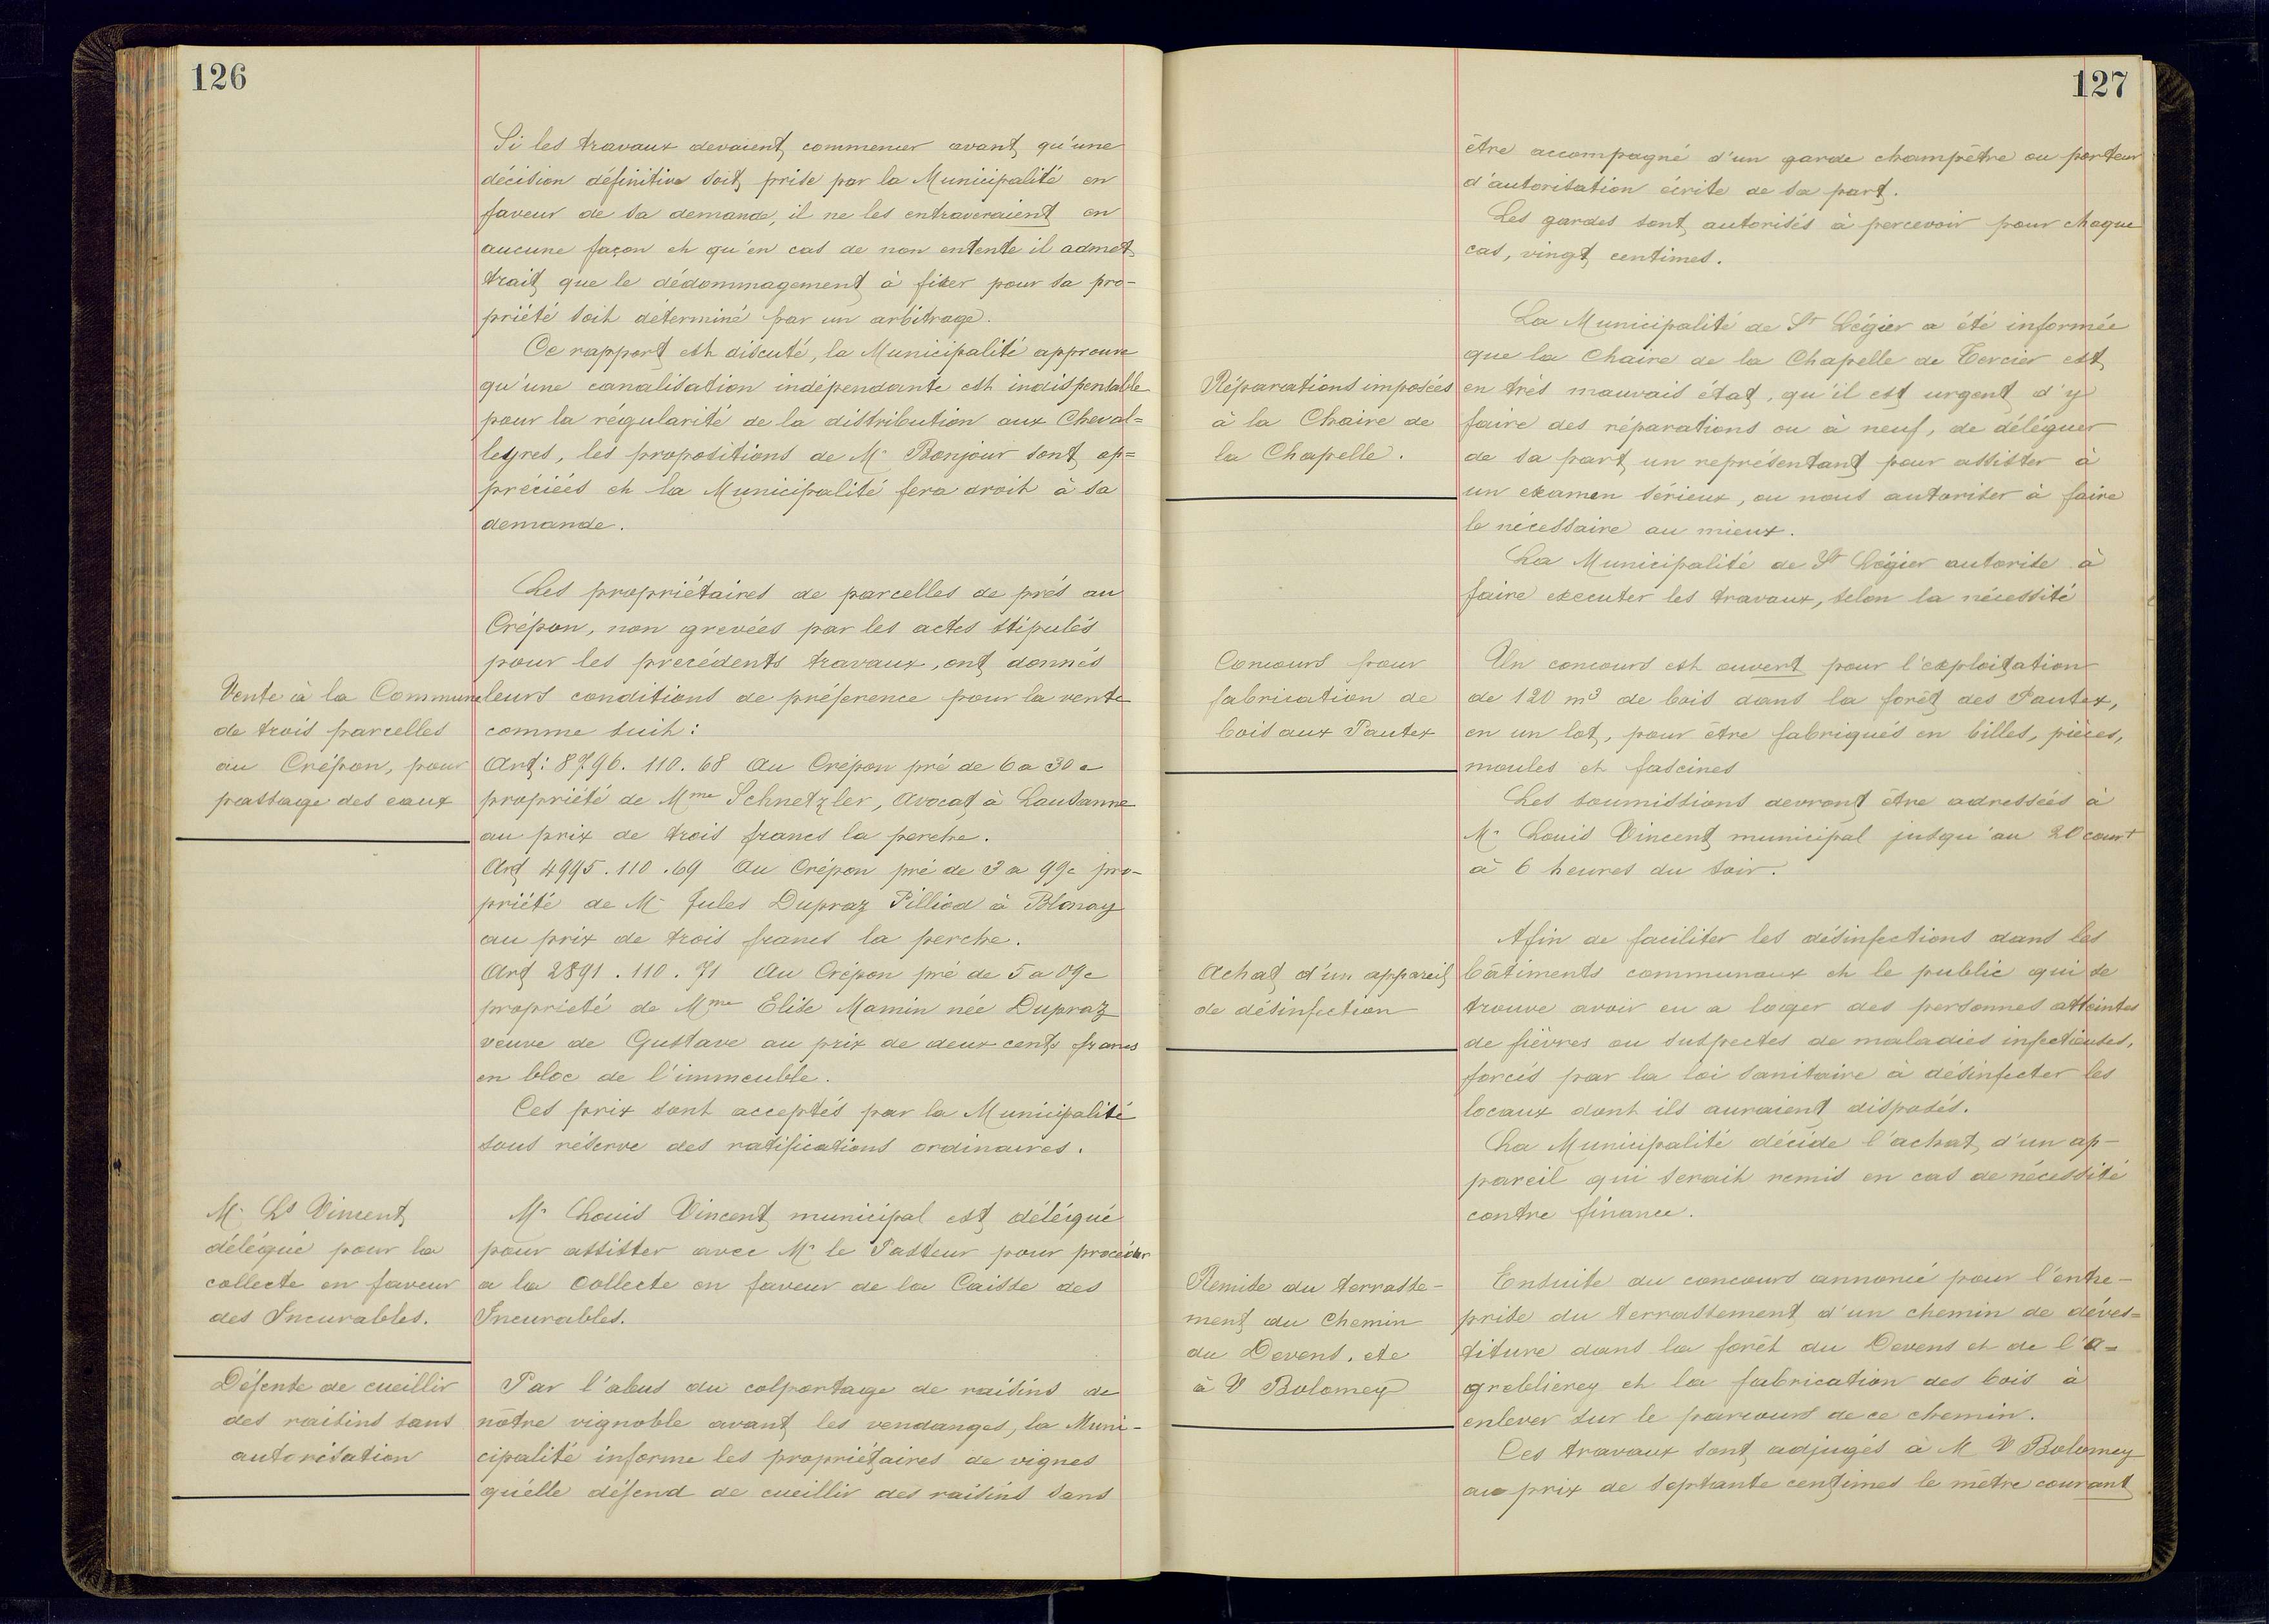 126
Si les travaux devaient commencer avant qu'une
décision définitive soit prise par la Municipalité en
faveur de sa demande, il ne les entraveraient en
aucune façon et qu'en cas de non entente il admet
trait que le dédommagement à fixer pour sa pro-
priété soit déterminé par un arbitrage.
Ce rapport est discuté, la Municipalité approuve
qu'une canalisation indépendante est indispensable
pour la régularité de la distribution aux Cheval=
leyres, les propositions de Mr Bonjour sont ap=
préciées et la Municipalité fera droit à sa
demande.
Vente à la Commune
de trois parcelles
au Crépon, pour
passage des eaux
Les propriétaires de parcelles de prés au
Crépon, non grevées par les actes stipulés
pour les precédents travaux, ont donnés
leurs conditions de préference pour la vente
comme suit:
Art: 8796. 110. 68 Au Crépon pré de 6 a 30 c
propriété de Mme Schnetzler, Avocat à Lausanne
au prix de trois francs la perche.
Art 4995. 110. 69 Au Crépon pré de 3 a 99c pro-
priété de Mr Jules Dupraz Pilliod à Blonay
au prix de trois francs la perche.
Art 2891. 110. 71 Au Crépon pré de 5 a 09c
proprieté de Mme Elise Mamin née Dupraz
veuve de Gustave au prix de deux cents francs
en bloc de l'immeuble.
Ces prix sont acceptés par la Municipalité
sous réserve des ratifications ordinaires.
Mr Ls Vincent
délégué pour la
collecte en faveur
des Incurables.
Mr Louis Vincent municipal est délégué
pour assister avec Mr le Pasteur pour procéder
a la collecte en faveur de la Caisse des
Incurables.
Défense de cueillir
des raisins sans
autorisation
Par l'abus du colportage de raisins de
nôtre vignoble avant les vendanges, la Muni-
cipalité informe les propriétaires de vignes
qu'elle défend de cueillir des raisins sans
127
être accompagné d'un garde champêtre ou porteur
d'autorisation écrite de sa part.
Les gardes sont autorisés à percevoir pour chaque
cas, vingt centimes.
Réparations imposées
à la Chaire de
la Chapelle.
La Municipalité de St Légier a été informée
que la Chaire de la Chapelle de Tercier est
en très mauvais état, qu'il est urgent d'y
faire des réparations ou à neuf, de déléguer
de sa part un représentant pour assister à
un examen sérieux, ou nous autoriser à faire
le nécessaire au mieux.
La Municipalité de St Légier autorise à
faire executer les travaux, selon la nécessité
Concours pour
fabrication de
bois aux Pautex
Un concours est ouvert pour l'exploitation
de 120 m3 de bois dans la forêt des Pautex,
en un lot, pour être fabriqués en billes, pièces,
moules et fascines
Les soumissions devront être adressées à
Mr Louis Vincent municipal jusqu'au 20 court
à 6 heures du soir.
Achat d'un appareil
de désinfection
Afin de faciliter les désinfections dans les
bâtiments communaux et le public qui se
trouve avoir eu a loger des personnes atteintes
de fièvres ou suspectes de maladies infectieuses,
forcés par la loi sanitaire à désinfecter les
locaux dont ils auraient disposés.
La Municipalité décide l'achat d'un ap-
pareil qui serait remis en cas de nécessité
contre finance.
Remise du terrasse-
ment du Chemin
du Devens, etc
à V Bolomey
Ensuite du concours annoncé pour l'entre-
prise du terrassement d'un chemin de déves=
titure dans la forêt du Devens et de l'A=
greblierey et la fabrication des bois à
enlever sur le parcours de ce chemin.
Ces travaux sont adjugés à M V Bolomey
au prix de septante centimes le mètre courant